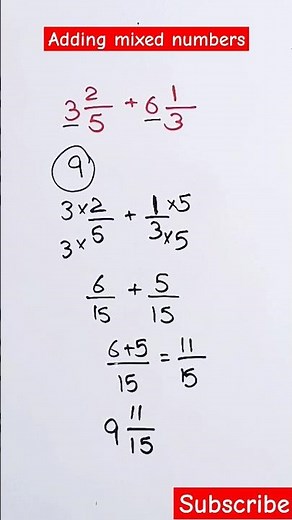 Adding mixed numbers
3 2/5 + 6 1/3
9
3×2/3×5 + 1×5/3×5
6/15 + 5/15
6+5/15 = 11/15
9 11/15
Subscribe